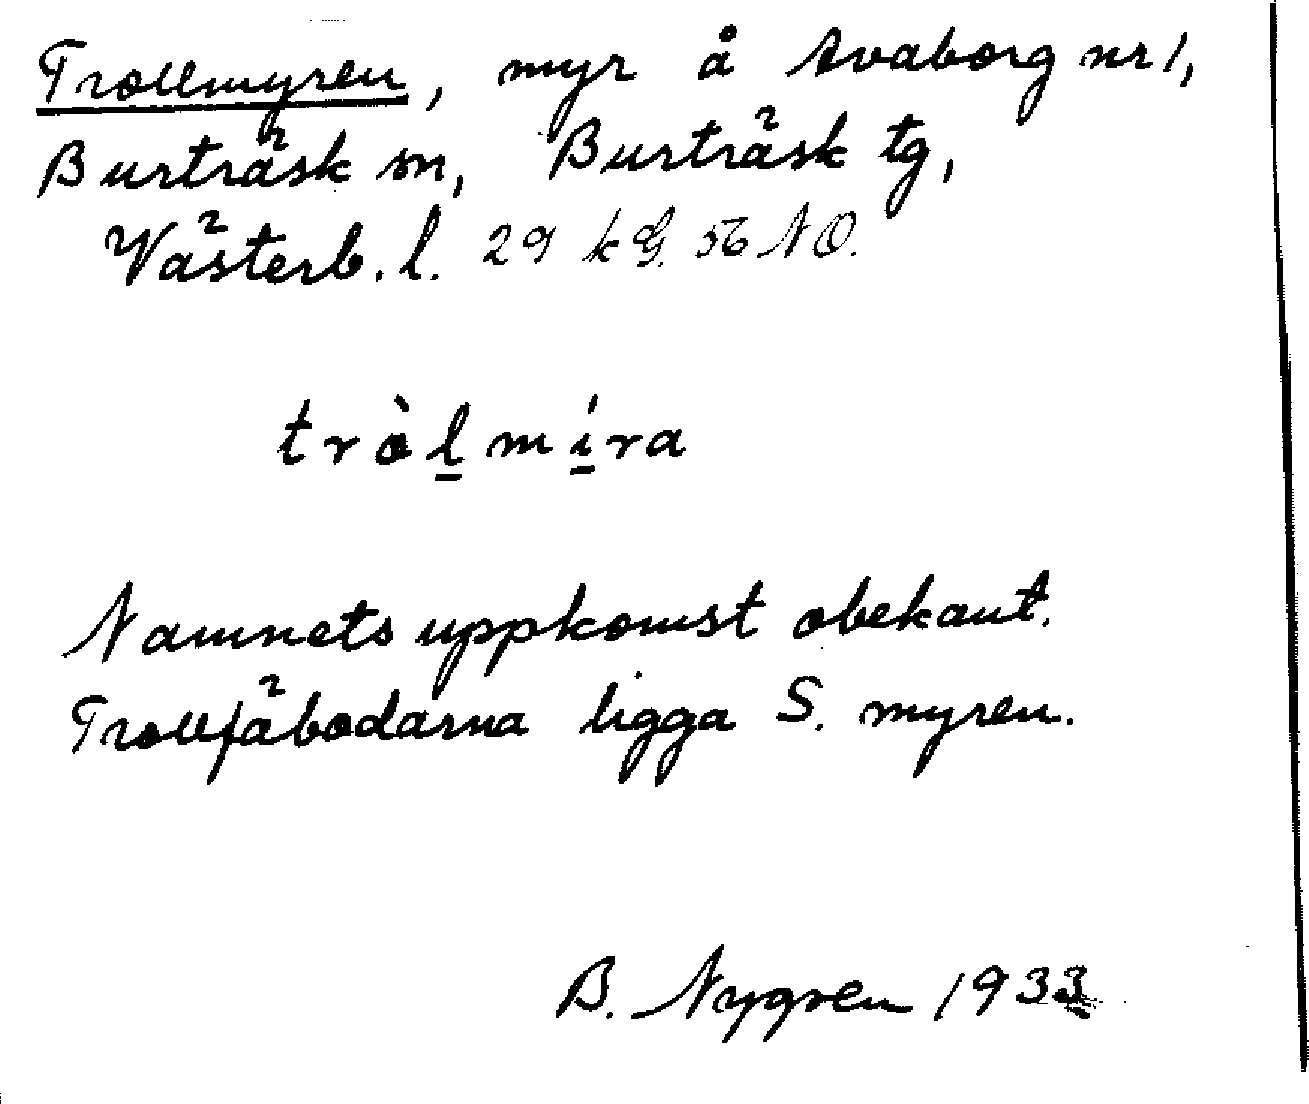 Trollmyren, myr å Avaborg nr 1,
Burträsk sn, Burträsk tg,
Västerb. l. 29 k G. 56 NO.
tròl̲mí̲ra
Namnets uppkomst obekant.
Trollfäbodarna ligga S. myren.
B. Nygren 1933